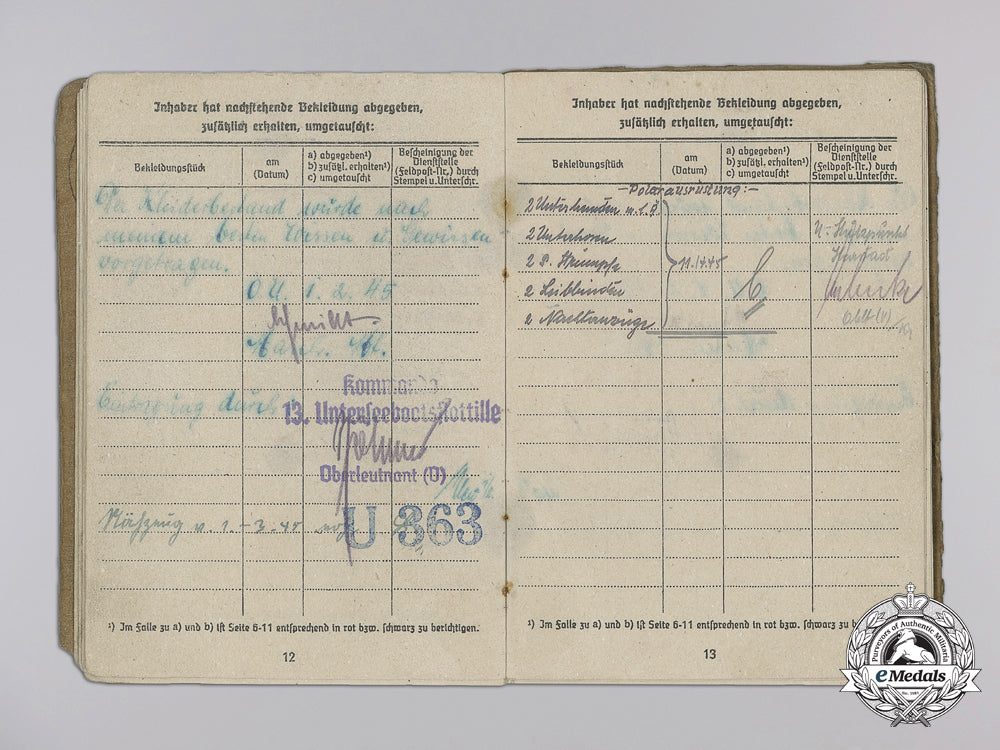 Inhaber hat nachstehende Bekleidung abgegeben,
zusätzlich erhalten, umgetauscht:
Bekleidungsstück
am
(Datum)
a) abgegeben¹)
b) zusätzl. erhalten¹)
c) umgetauscht
Bescheinigung der
Dienststelle
(Feldpost-Nr.) durch
Stempel u. Unterschr.
Kleiderbestand wurde nach
meinem besten Wissen u. Gewissen
vorgetragen.
O.U. 1.2.45
durch
Kommando
13. Unterseebootsflottille
Oberleutnant (V)
Nähzeug v. 1. - 3. 45
U 363
¹) Im Falle zu a) und b) ist Seite 6-11 entsprechend in rot bzw. schwarz zu berichtigen.
12
Inhaber hat nachstehende Bekleidung abgegeben,
zusätzlich erhalten, umgetauscht:
Bekleidungsstück
am
(Datum)
a) abgegeben¹)
b) zusätzl. erhalten¹)
c) umgetauscht
Bescheinigung der
Dienststelle
(Feldpost-Nr.) durch
Stempel u. Unterschr.
- Polarausrüstung: -
2 Unterhemden
2 Unterhosen
U-Stützpunkt
2 P. Strümpfe
11.1.45
b
Harstad
2 Leibbinden
2 Nachtanzüge
¹) Im Falle zu a) und b) ist Seite 6-11 entsprechend in rot bzw. schwarz zu
13
Purveyors of Authentic Militaria
eMedals